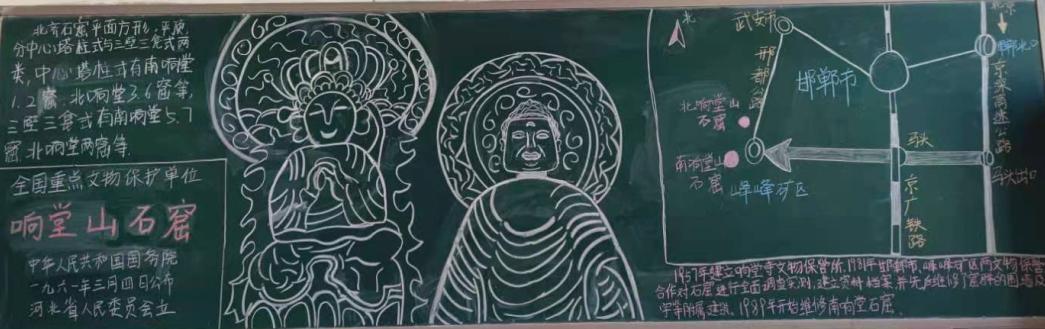 北齐石窟平面方形,平顶,
分中心塔柱式与三壁三龛式两
类,中心塔柱式有南响堂
1.2窟,北响堂3.6窟等,
三壁三龛式有南响堂5.7
窟,北响堂两窟等.
全国重点文物保护单位
响堂山石窟
中华人民共和国国务院
一九六一年三月四日公布
河北省人民委员会立
北
武安市
邯都公路
邯郸市
北响堂山
石窟
南响堂山
石窟
峰峰矿区
马头
京广铁路
北京
京深高速公路
马头出口
1957年建立响堂寺文物保管所,1981年邯郸市,峰峰矿区两文物保管
合作对石窟进行全面调查实测,建立资料档案,并先后维修
等附属建筑,1989年开始维修南响堂石窟.